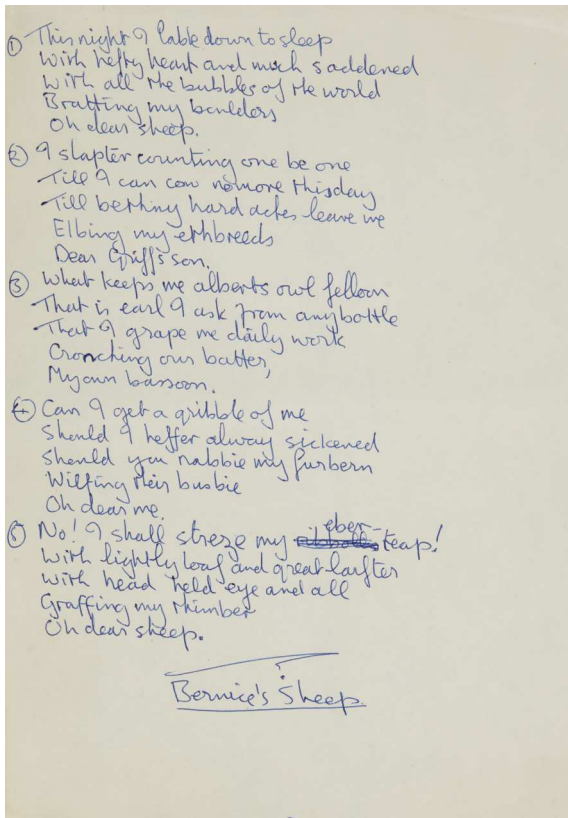 ① This night I lable down to sleep
With hefty heart and much saddened
With all the bubbles of the world
Bratting my boulders
Oh dear sheep.
② I slapter counting one be one
Till I can cow nomore thisday
Till bethiny hard actes leave me
Elbing my ethbreeds
Dear Griff's son.
③ What keeps me alberts owl felloon
That is earl I ask from anybottle
That I grape me daily work
Cronching our batter,
My own bassoon.
④ Can I get a gribble of me
Should I heffer alway sickened
Should you nabbie my furbern
Wilfing their busbie
Oh dear me.
eber-
⑤ No! I shall streze my teap!
With lightly loaf and great larfter
With head held eye and all
Graffing my rhimber
Oh dear sheep.
Bernice's Sheep.